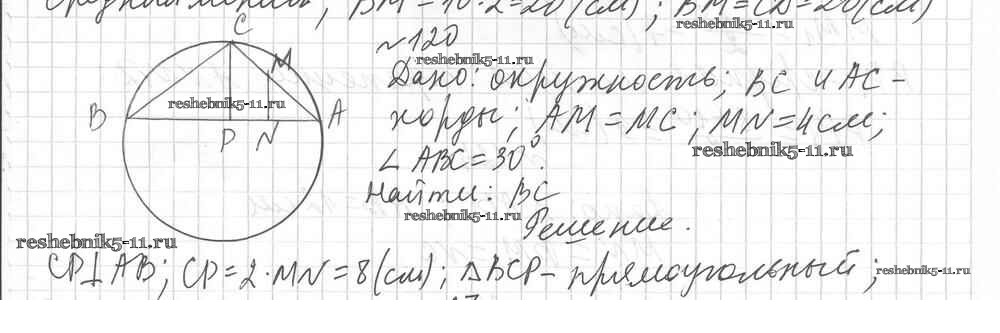 BM = 10 · 2 = 20 (см); BM = CD = 20 (см)
reshebnik5-11.ru
№120
reshebnik5-11.ru
C
M
Дано: окружность; BC и AC -
reshebnik5-11.ru
B
A
хорды; AM = MC; MN = 4 см;
P
N
reshebnik5-11.ru
∠ ABC = 30°.
Найти: BC
reshebnik5-11.ru
Решение.
reshebnik5-11.ru
CP ⊥ AB; CP = 2 · MN = 8 (см); △BCP - прямоугольный;
reshebnik5-11.ru